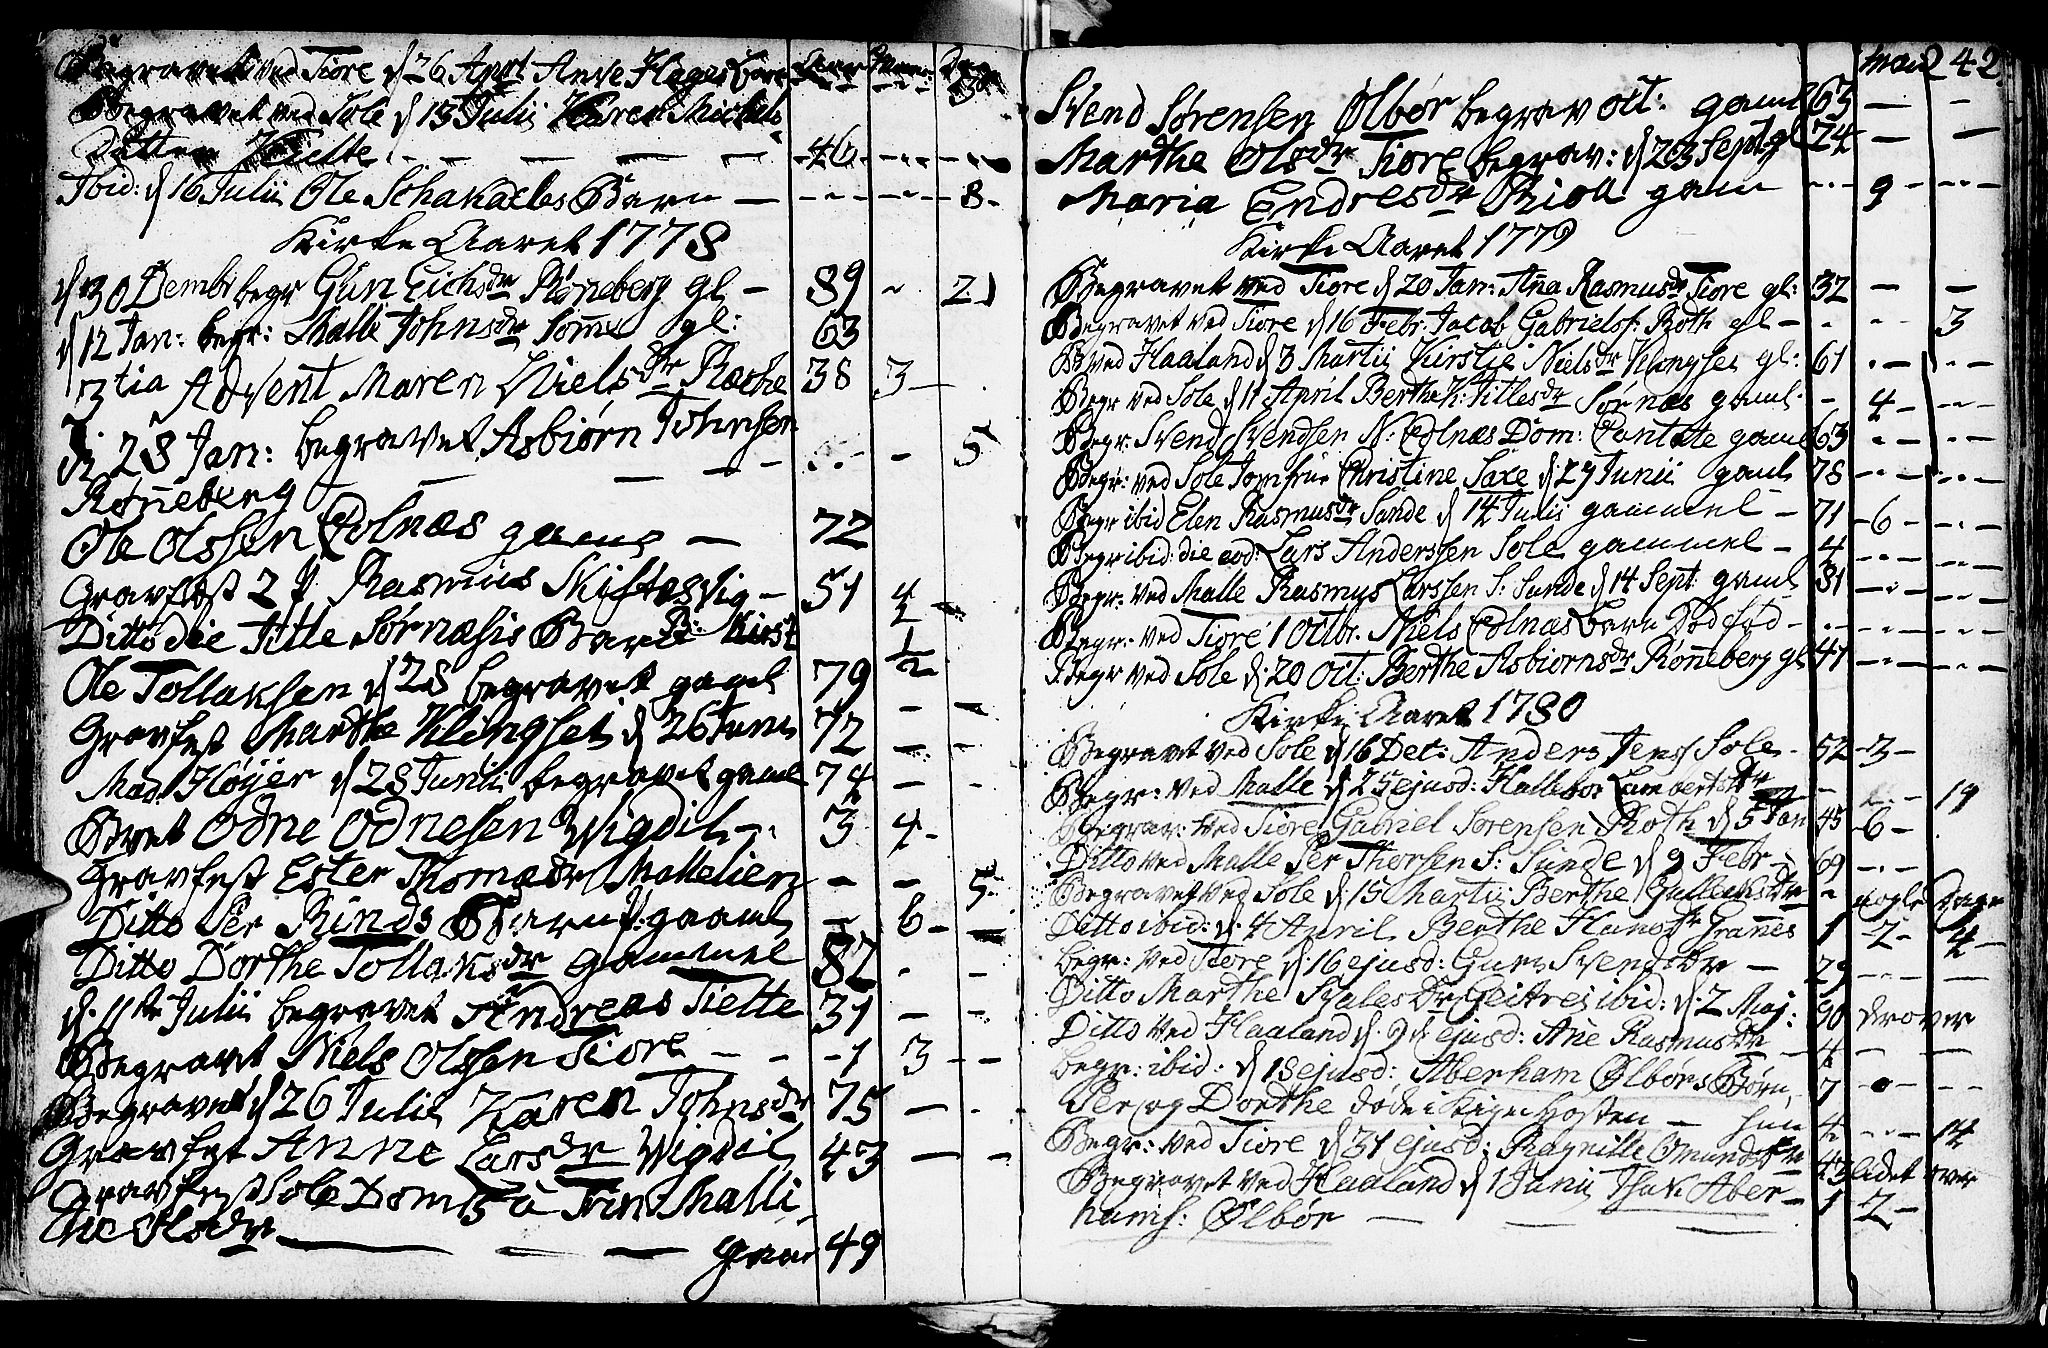 Begravet ved Tiore d 26 Apr Anve Hages barn Aar Maan: Dag
Begravet ved Sole d 13 Julii Karen Michels
Datter Tielte. — — — — 46. --- ---
Ibid: d 16 Julii Ole Schakadles Barn — --- --- 8.
Kirke Aaret 1778
d 30 Dembr begr Gun Eichsdr Røneberg gl — 89 - 21
d 12 Jan: begr: Malle Johnsdr Somme gl: 63
3tia Advent Maren Nielsdr Ræge 38 3 — .
d 28 Jan: begravet Asbiørn Johnsen
Røneberg — — — — — 5
Ole Olssen Colnæs gaml — 72
Gravfest 2 P. Rasmus Skiftesvig — 51 4/2
Ditto die Title Sørnæsis Barn Kirst 1/2
Ole Tollaksen d 28 begravet gaml 79 — —
Gravfest Marthe Klingset d 26 Junii 72 — —
Mad: Høyer d 28 Junii begravet gaml 74 — —
Bvet Odne Odnesen Wigdil — 3 4 —
Gravfest Ester Thomædr Mallelien — — 5
Ditto Per Rinds Barn gaml — 6 — —
Ditto Dorthe Tollaksdr gammel 82 . —
d. 11te Julii begravet Andreas Tielte 31 — —
Begravet Niels Olssen Tiore — — 1 3 — —
Begravet d 26 Julii Karen Johnsdr 75 — .
Gravfest Anne Larsdr Wigdil 43 — —
Gravfest Sole Dom 5 à Trin Malli
the Olsdr — — — gaml 49
Maan 242
Svend Sørensen Ølbør begrav oct: gaml 63 — —
Marthe Olsdr Tiore begrav: d 23 Sept gl 74 — —
Maria Endresdr Riou gam --- 9 - ---
Kirke Aaret 1779
Begravet ved Tiore d 20 Jan: Aña Rasmusdr Tiore gl: 32 — —
Begravet ved Tiore d 16 Febr. Jacob Gabrielss: Roth gl — - --- 3
B ved Haaland d 3 Martii Kirstie Nielsdr Klongset gl: 61 --- ---
Begr ved Sole d 11 April Berthe K: Titlesdr Sørnæs gaml - 4 - ---
Begr: Svend Svendsen N: Colnæs Dom: Cantate gaml 63 --- ---
Begr: ved Sole Jomfrue Christine Saxe d 27 Junii gaml 78 --- ---
Begr ibid Elen Rasmusdr Sande d 14 Julii gammel — 71 - 6 - ---
Begr ibid: die eod: Lars Anderssen Sole gammel — 4 --- ---
Begr: ved Malle Rasmus Larssen S: Sunde d 14 Sept: gaml 81 --- ---
Begr: ved Tiore 1 Octbr. Niels Colnæs barn Dødfød — --- --- ---
Begr ved Sole d: 20 Oct: Berthe Asbiørnsdr Røneberg gl 41 --- ---
Kirke Aaret 1780
Begravet ved Sole d 16 Det: Anders Jenss Sole — 52 - 3 —
Begr: ved Malle d 25 ejusd: Hallebor Lambertsdr — --- 19
Begrav: ved Tiore Gabriel Sorensen Roth d 5 Jan 45 - 6 —
Ditto ved Malle Per Thorsen S: Sunde d 9 Febr — 69 ---
Begravet ved Sole d: 15 Martii Berthe Gulleiksdr - nogle Dage
Ditto ibid: d: 4 April Berthe Hansdr Grannes 1 - 2 - 4 —
begr: ved Tiore d 16 ejusd: Guri Svendsdr — 29 --- —
Ditto Marthe Syalesdr Geitrej ibid: d: 2 Maj: 90 drover
Ditto ved Haaland d: 9 d ejusd: Ane Rasmusdr — 4 — —
begr: ibid: d 18 ejusd: Aberham Ølbørs Børn, 7 - 0 — ---
Per og Dorthe døde i Kigehosten — hun 4 --- 14
Begr: ved Tiore d 31 ejusd: Ragnille Omundsdr 43 lidet over
Begravet ved Haaland d 1 Junii Isak Aber- 1 2 —
hams: Ølbør — — —